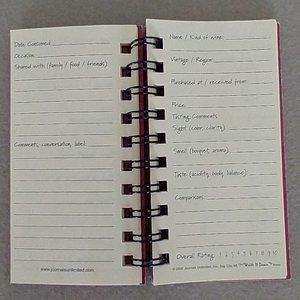 Date Consumed
Occasion
Shared with (family / food / friends)
Comments, conversation, label
www.journalsunlimited.com
Name / Kind of wine:
Vintage / Region:
Purchased at / received from:
Price:
Tasting Comments
Sight (color, clarity)
Smell (bouquet, aroma)
Taste (acidity, body, balance)
Comparisons:
Overall Rating: 1 2 3 4 5 6 7 8 9 10
Journals Unlimited, Inc. Bay City, MI "Write it Down"